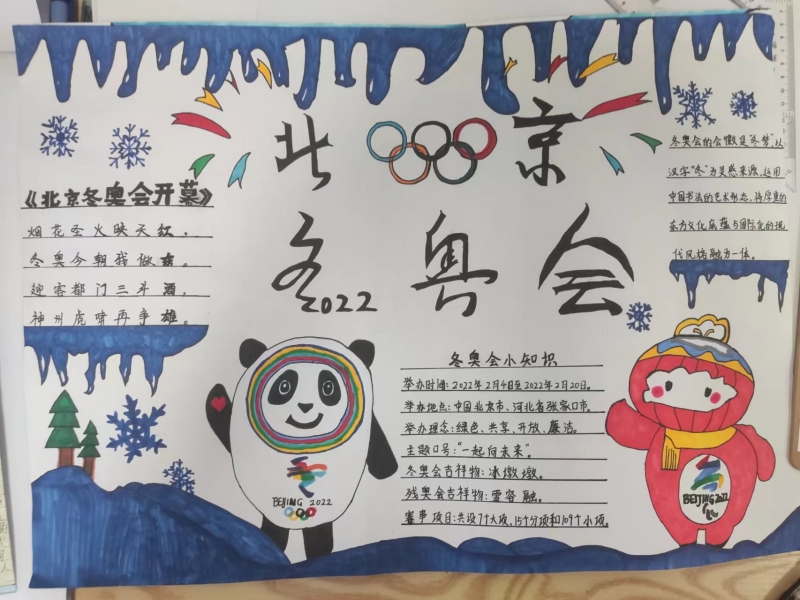 北京
冬奥会
2022
《北京冬奥会开幕》
烟花圣火映天红，
冬奥今朝我做东。
迎客都门三斗酒，
神州虎啸再争雄。
冬奥会的会徽是“冬梦”，以
汉字“冬”为灵感来源，运用
中国书法的艺术形态，将厚重的
东方文化底蕴与国际化的现
代风格融为一体。
冬奥会小知识
举办时间：2022年2月4日至2022年2月20日。
举办地点：中国北京市、河北省张家口市。
举办理念：绿色、共享、开放、廉洁。
主题口号：“一起向未来”。
冬奥会吉祥物：冰墩墩。
残奥会吉祥物：雪容融。
赛事项目：共设7个大项，15个分项和109个小项。
BEIJING 2022
BEIJING 2022